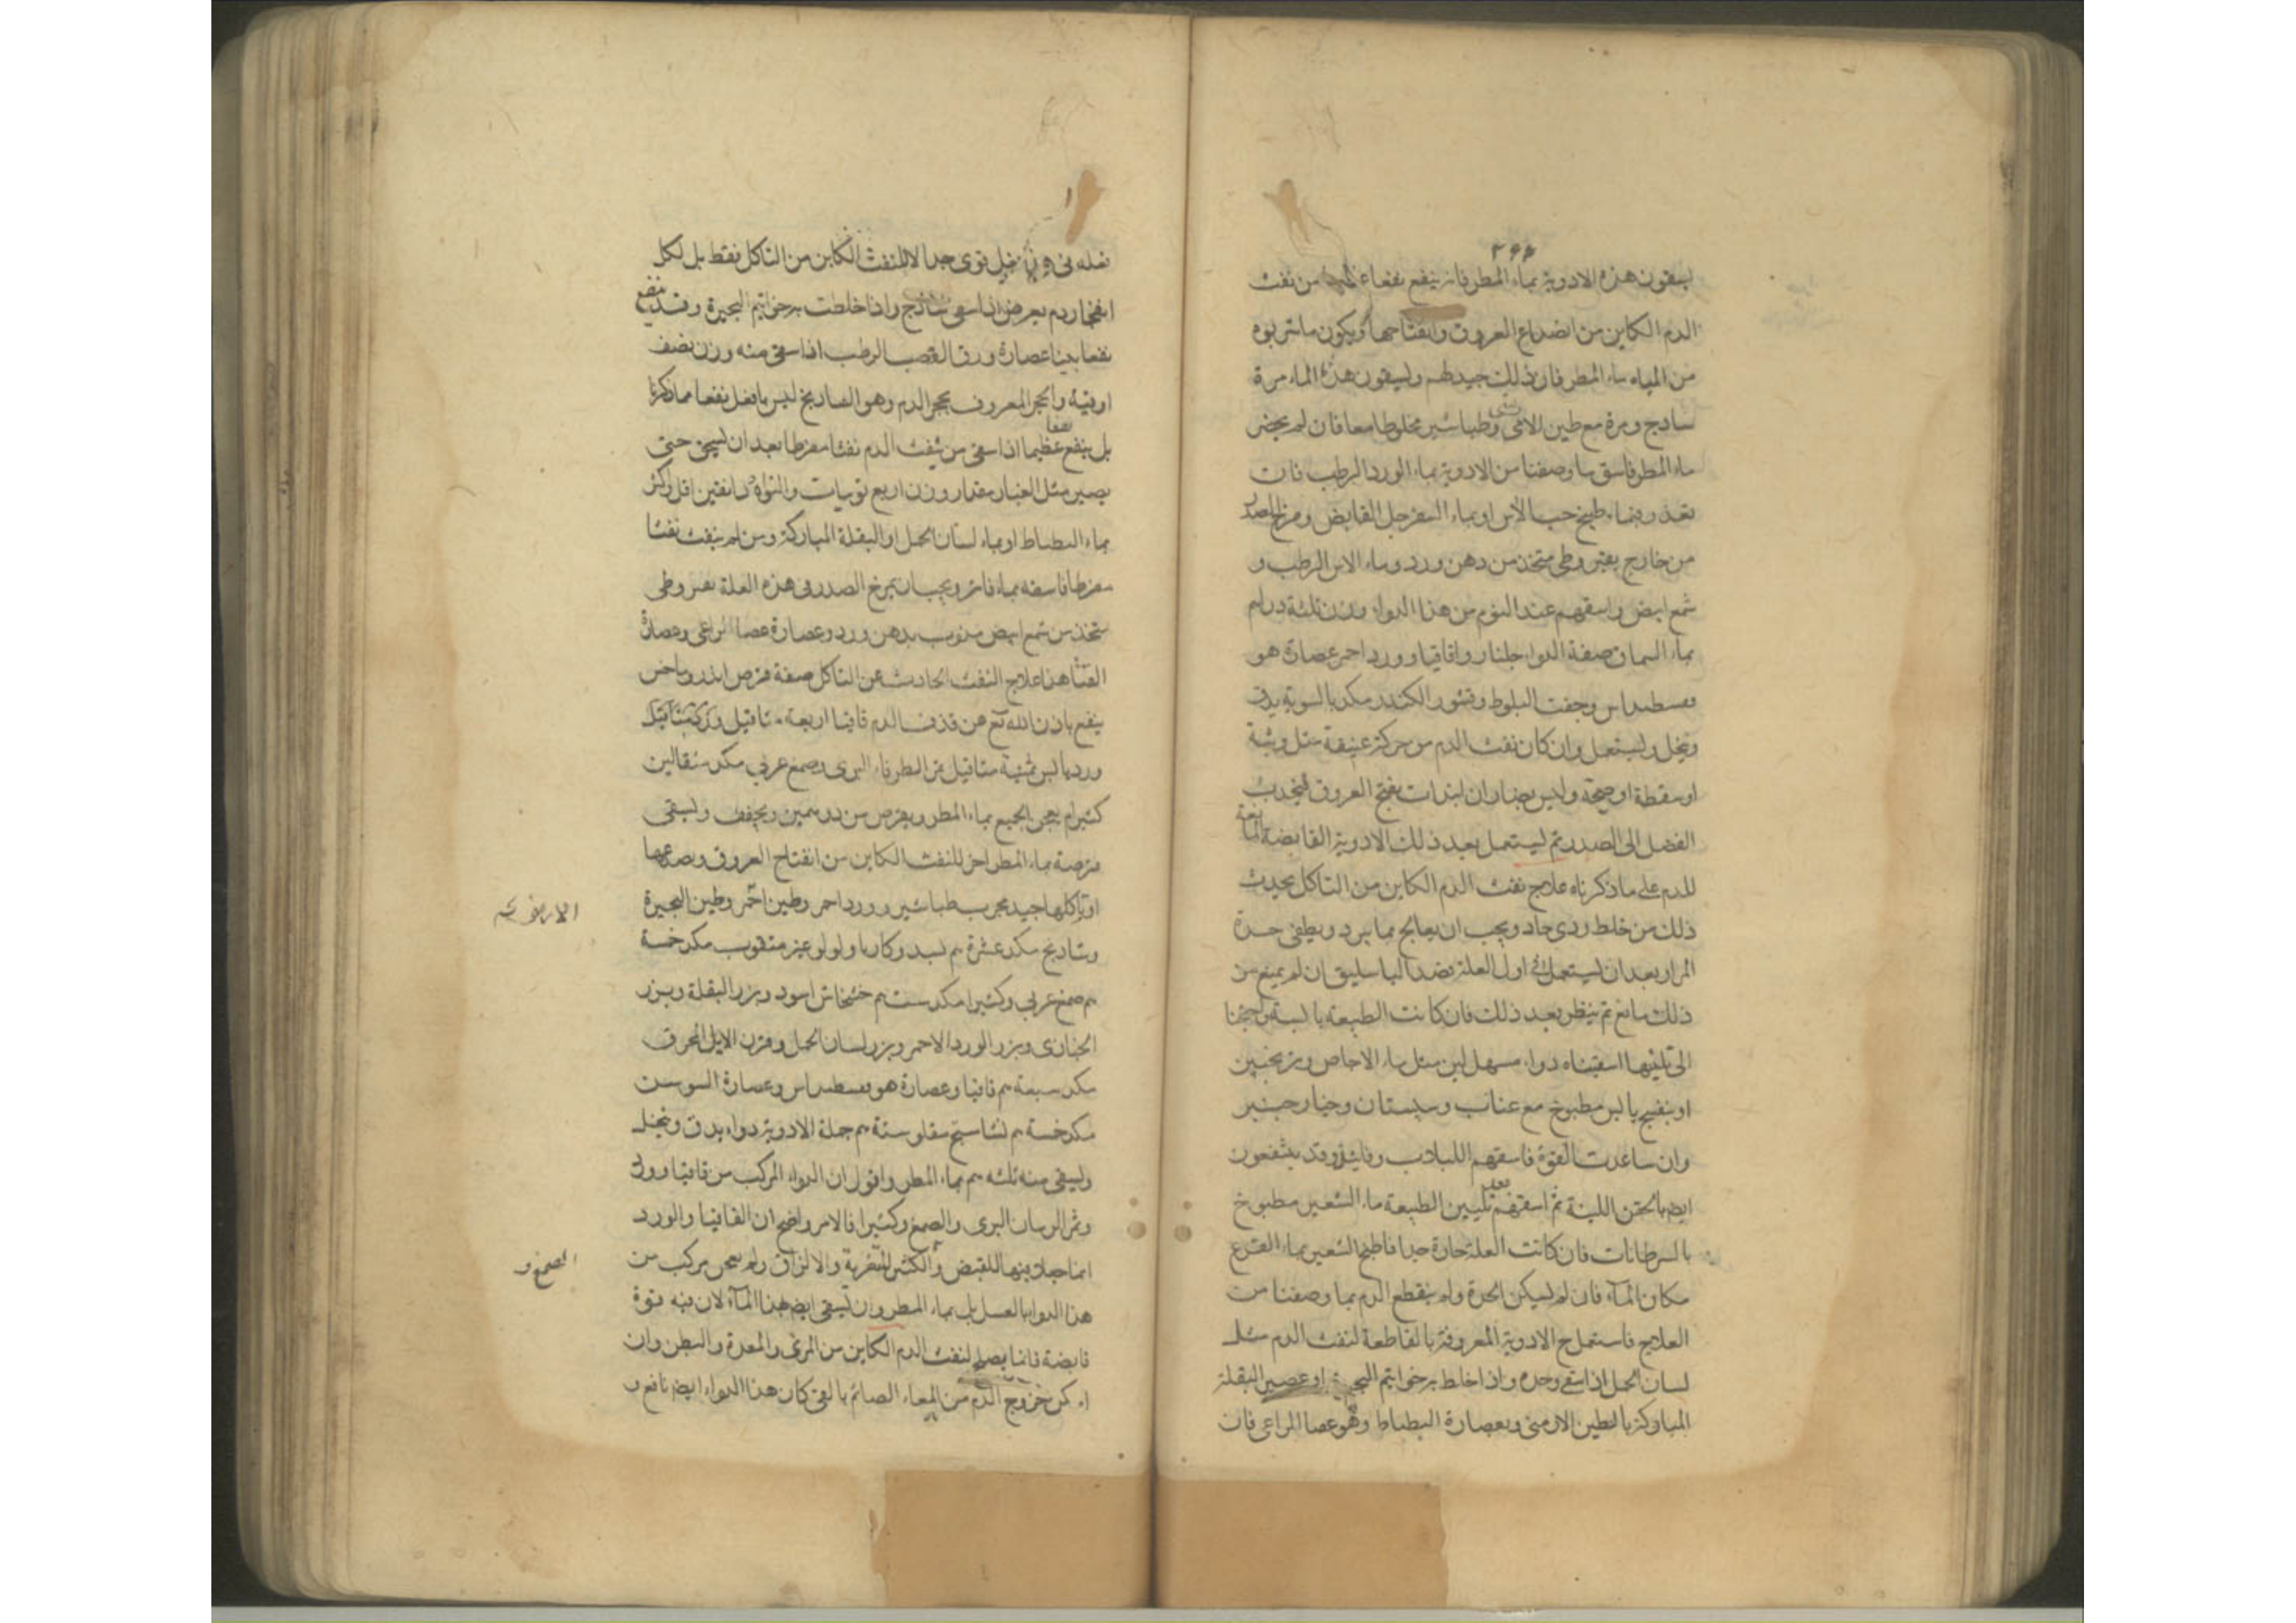 ٢٩٤
ليسقون هذه الادوية بماء المطر فانه ينفع نفعا عظيما من نفث
الدم الكاين من انصداع العروق وانفتاحها ويكون ما يشربوه
من المياه ماء المطر فان ذلك جيد لهم وليسقون هذا الماء مرة
ساذج ومرة مع طين الارمنى وطباشير مخلوطا معا فان لم يحضر
ماء المطر فاسق ما وصفنا من الادوية بماء الورد الرطب فان
تعذر فبماء طبيخ حب الآس او بماء السفرجل القابض ومرخ الصدر
من خارج بقيروطى متخذ من دهن ورد وماء الاس الرطب و
شمع ابيض واسقهم عند النوم من هذا الدواء وزن ثلثة دراهم
بماء السماق صفة الدواء جلنار واقاقيا وورد احمر عصارة هو
فسطيداس وجفت البلوط وقشور الكندر مكد بالسوية يدق
وينخل ويستعمل وان كان نفث الدم من حركة عنيفة مثل وثبة
او سقطة او صيحة وليس بضار ان ابتدات بفتح العروق لينجذب
الفضل الى الصدر ثم ليستعمل بعد ذلك الادوية القابضة المانعة
للدم على ما ذكرناه علاج نفث الدم الكاين من التاكل يحدث
ذلك من خلط ردى حاد ويجب ان يعالج بما يبرد ويطفى حدة
المرار بعد ان ليستعمل فى اول العلة فصد الباسليق ان لم يمنع من
ذلك مانع ثم ينظر بعد ذلك فان كانت الطبيعة يابسة واحتجنا
الى تليينها اسقيناه دواء مسهل لين مثل ماء الاجاص وترنجبين
او بنفسج يابس مطبوخ مع عناب وسبستان وخيار جنبر
وان ساعدت القوة فاسقهم اللبلاب وفانيذ وقد ينتفعون
ايضا بالحقن اللينة ثم اسقهم بعد تليين الطبيعة ماء الشعير مطبوخ
بالسرطانات فان كانت العلة حارة جدا فاطبخ الشعير بماء القرع
مكان الماء فان لم ليسكن الحدة ولم ينقطع الدم بما وصفنا من
العلاج فاستعمل ح الادوية المعروفة بالقاطعة لنفث الدم مثل
لسان الحمل اذا سقى وحده واذا خلط برخواتيم البحيرة او عصير البقلة
المباركة بالطين الارمنى وبعصارة البطباط وهو عصا الراعى فان
فعله فى قوى جدا لا للنفث الكاين من التاكل فقط بل لكل
انفجار دم يعرض اذا سقى ساذج واذا خلطت برخواتيم البحيرة وقد ينفع
نفعا بينا عصارة ورق القصب الرطب اذا سقى منه وزن نصف
اوقية والحجر المعروف بحجر الدم وهو الشاذنج ليس باقل نفعا مما ذكرنا
بل ينفع نفعا عظيما اذا سقى من ينفث الدم نفثا مفرطا بعد ان ليسحق حتى
يصير مثل الغبار مقدار وزن اربع نويات والنواة دانقين اقل واكثر
بماء البطباط او بماء لسان الحمل او البقلة المباركة ومن لم ينفث نفثا
مفرطا فاسقه بماء فاتر ويجب ان يمرخ الصدر فى هذه العلة بقيروطى
متخذ من شمع ابيض مذوب بدهن ورد وعصارة عصا الراعى وعصارة
القثا هذا علاج النفث الحادث عن التاكل صفة قرص
ينفع باذن الله تع من قذف الدم قاقيا اربعة مثاقيل
ورد يابس ثمنية مثاقيل ثمر الطرفاء البرى وصمغ عربى مكد مثقالين
كثيرا يعجن الجميع بماء المطر ويقرص من درهمين ويجفف وليسقى
قرصة بماء المطر اخر للنفث الكاين من انفتاح العروق وصدعها
او تاكلها جيد مجرب طباشير وورد احمر وطين احمر وطين البحيرة
الارض
وشاذنج مكد عشرة م لسبد وكاربا ولولو غير مثقوب مكد خمسة
م صمغ عربى وكثيرا مكد ست م خشخاش اسود وبزر البقلة وبزر
الخبازى وبزر الورد الاحمر وبزر لسان الحمل وقرن الايل المحرق
مكد سبعة م قاقيا وعصارة هو فسطيداس وعصارة السوسن
مكد خمسة م نشاستج مقلو ستة م جملة الادوية دواء يدق وينخل
وليسقى منه ثلثه م بماء المطر واقول ان الدواء المركب من قاقيا وورد
وثمر الرمان البرى والصمغ وكثيرا فالامر واضح ان القاقيا والورد
انما جعل فيها للقبض والكثيرا للتغرية والالزاق ولم يعجن مركب من
الصمغ و
هذا الدوا بالعسل بل بماء المطر وان يسقى ايضا بهذا الماء لان فيه قوة
قابضة فانما يصلح لنفث الدم الكاين من المرى والمعدة والبطن وان
كن خروج الدم من المعاء الصائم بالقى كان هذا الدواء ايضا نافع و